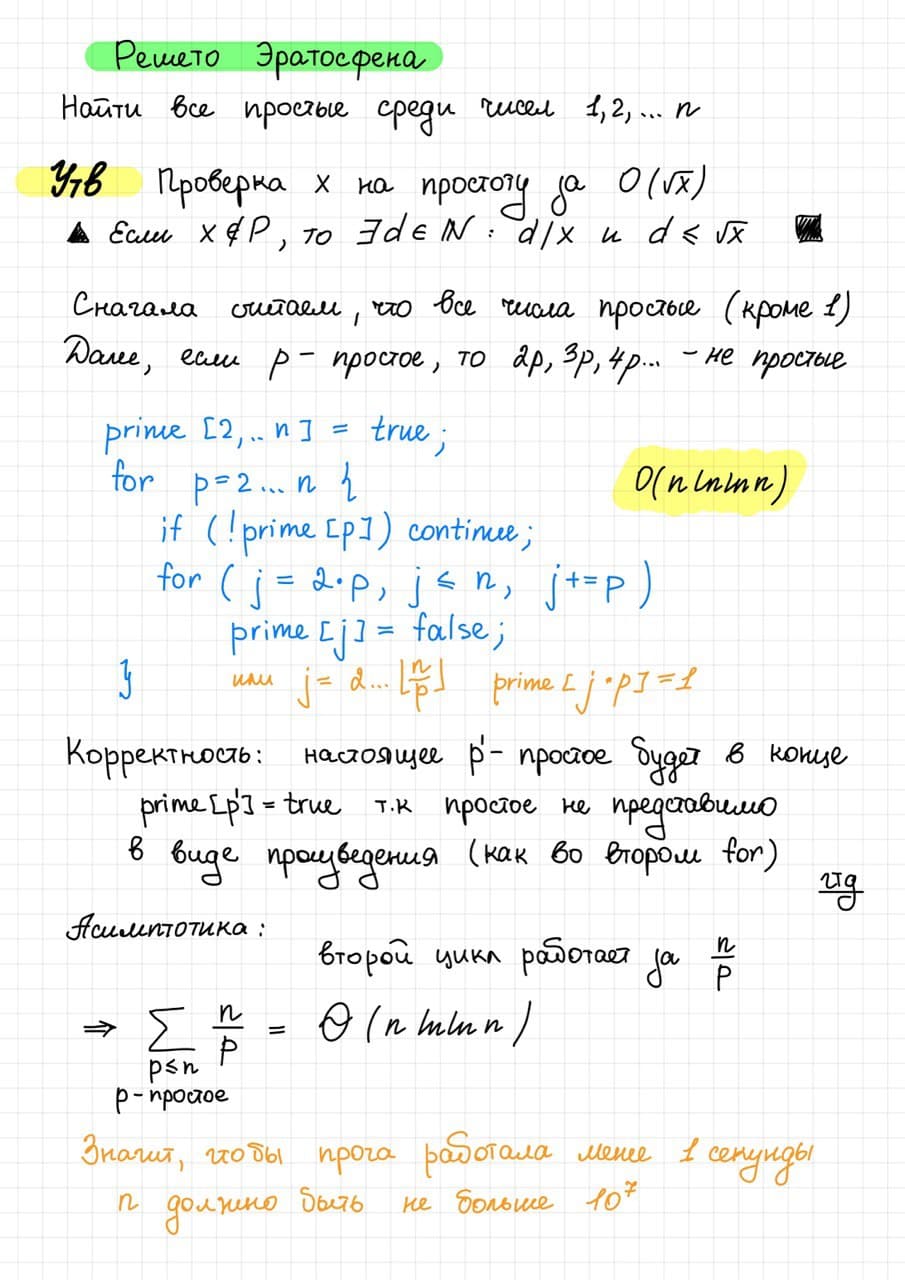 Решето Эратосфена
Найти все простые среди чисел 1, 2, ... n
Утв Проверка x на простоту за O(√x)
▲ Если x ∉ P, то ∃d ∈ ℕ : d/x и d ≤ √x ■
Сначала считаем, что все числа простые (кроме 1)
Далее, если p – простое, то 2p, 3p, 4p... – не простые
prime [2,.. n] = true;
for p = 2 ... n {
O(n ln ln n)
if (!prime [p]) continue;
for ( j = 2·p, j ≤ n, j += p )
prime [j] = false;
} или j = 2... ⌊n/p⌋ prime [j·p] = 1
Корректность: настоящее p' – простое будет в конце
prime [p'] = true т.к простое не представимо
в виде произведения (как во втором for)
чтд
Асимптотика:
второй цикл работает за n/p
⇒ ∑ n/p = Θ(n ln ln n)
p ≤ n
p – простое
Значит, чтобы прога работала менее 1 секунды
n должно быть не больше 10⁷